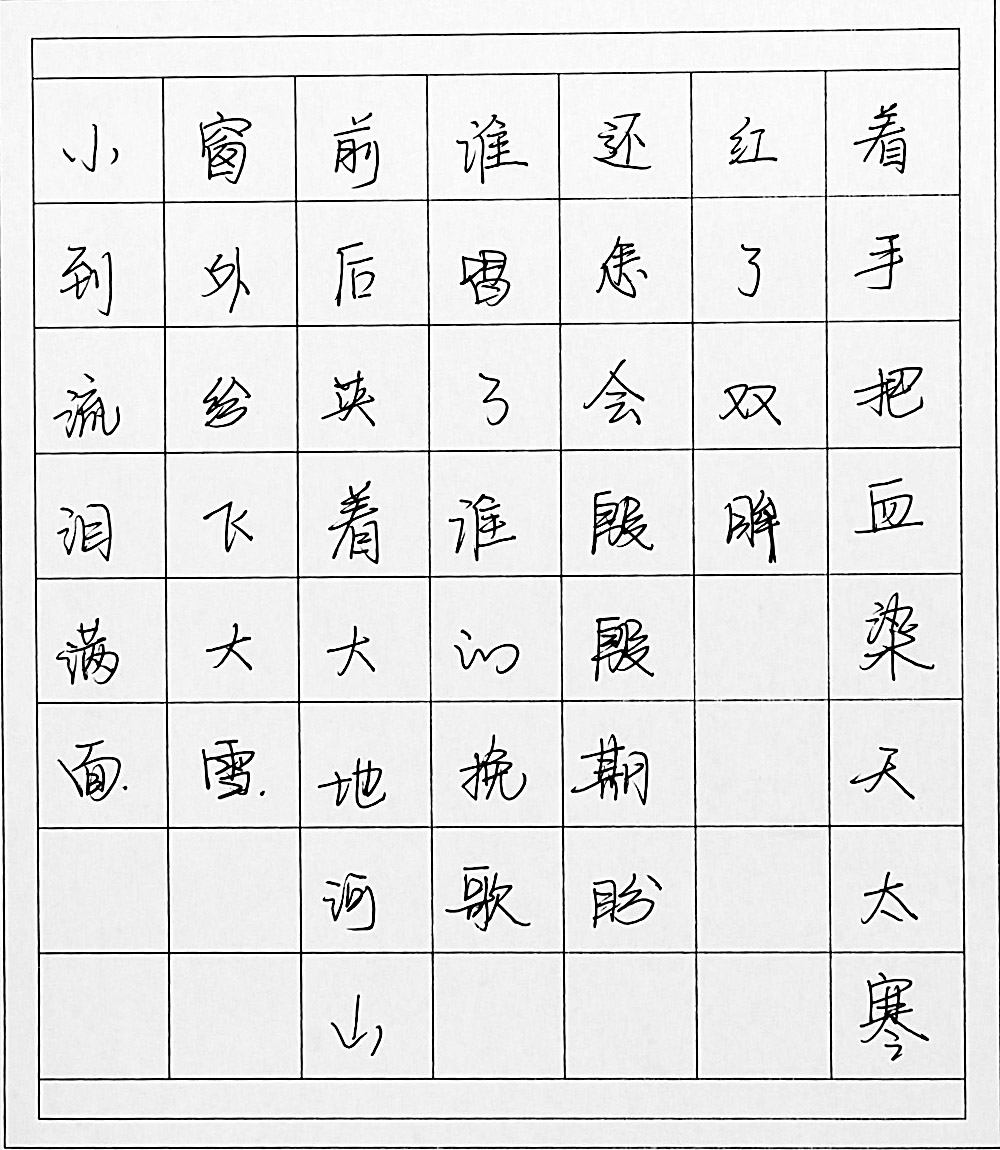 着手把血染天太寒
红了双眸
还会殷殷期盼
谁唱了谁的挽歌
前后英着大地河山
窗外给飞大雪.
小到流泪满面.